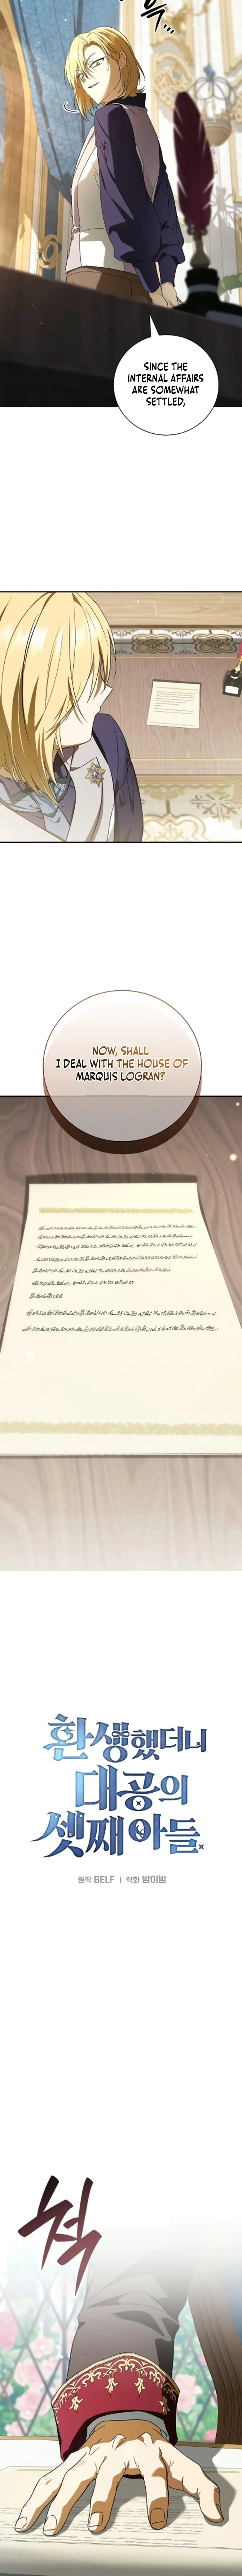 윽...
SINCE THE
INTERNAL AFFAIRS
ARE SOMEWHAT
SETTLED,
NOW, SHALL
I DEAL WITH THE HOUSE OF
MARQUIS LOGRAN?
환생했더니
대공의
셋째 아들
원작 BELF | 작화 밤이밤
척